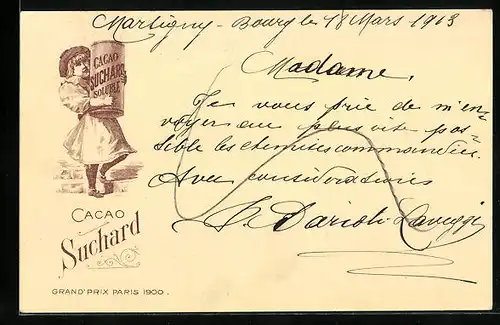 Martigny-Bourg le 18 Mars 1903
Madame,
Je vous prie de m'en=
voyer au plus vite pos=
sible les chemises commandées.
Avec considérations
CACAO
SUCHARD
SOLUBLE
CACAO
Suchard
GRAND'PRIX PARIS 1900.